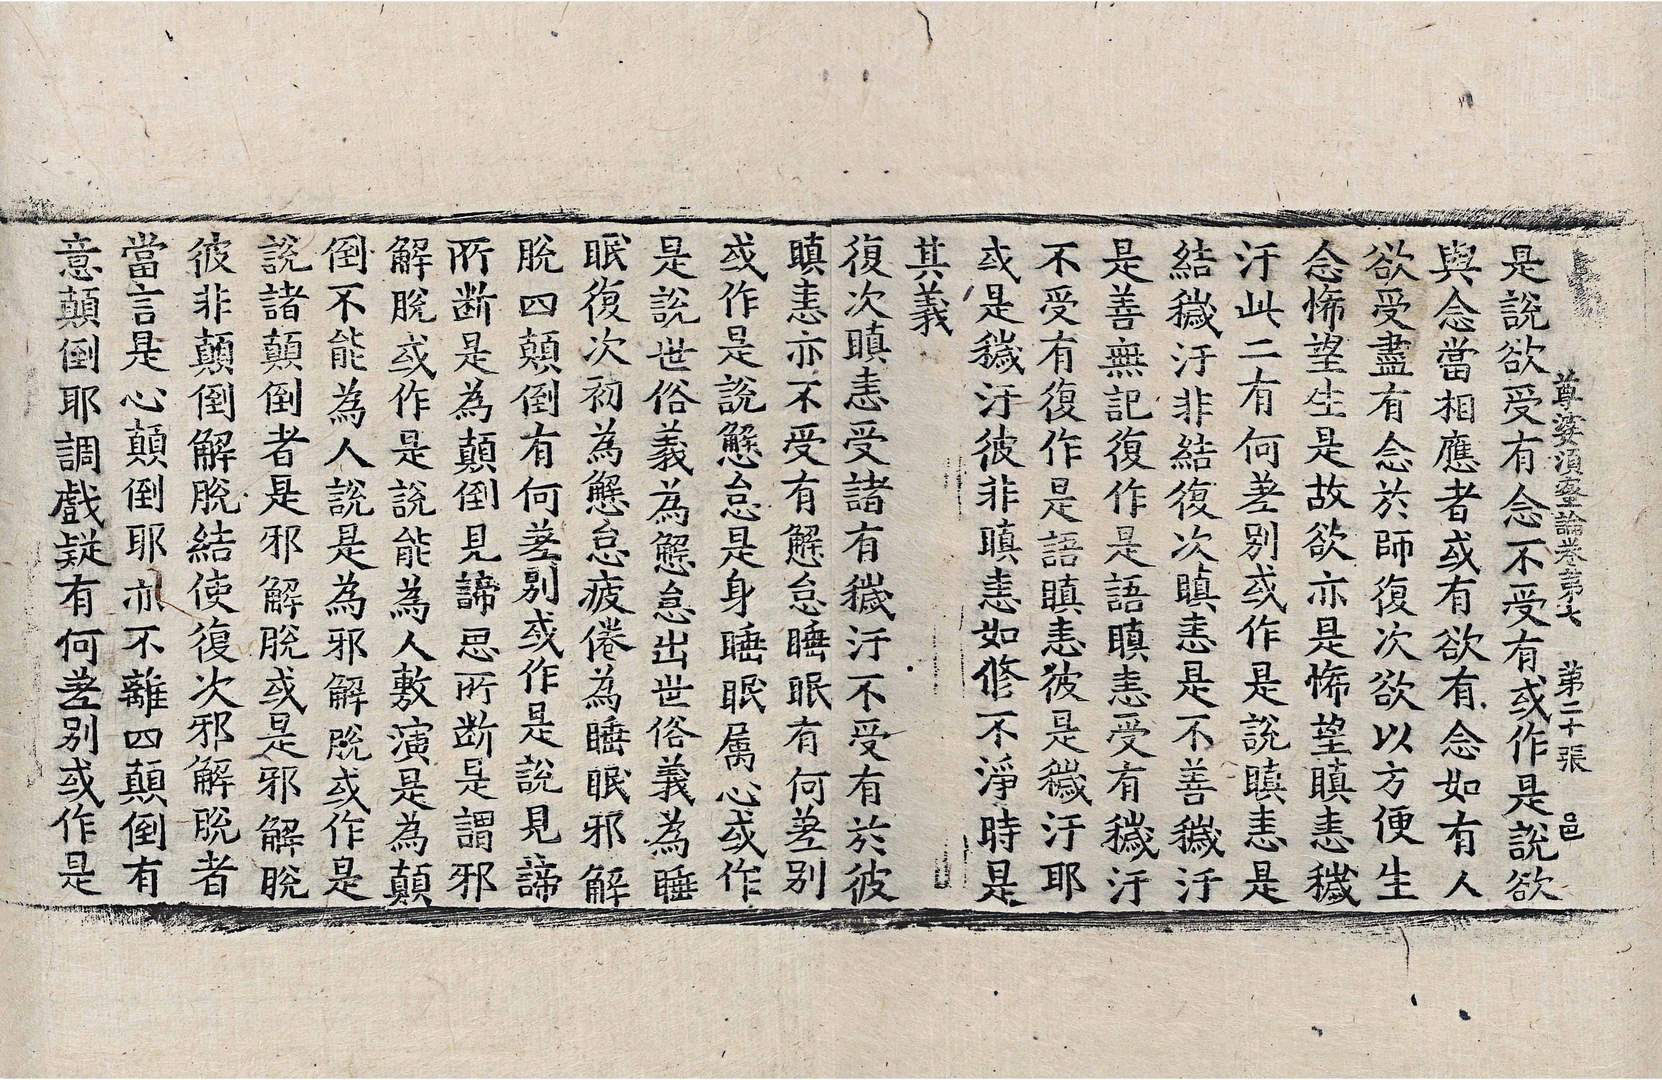 尊婆須蜜論卷第七 第二十張 邑
是說欲受有念不受有或作是說欲
與念當相應者或有欲有念如有人
欲受盡有念於師復次欲以方便生
念悕望生是故欲亦是悕望瞋恚穢
汙此二有何差別或作是說瞋恚是
結穢汙非結復次瞋恚是不善穢汙
是善無記復作是語瞋恚受有穢汙
不受有復作是語瞋恚彼是穢汙耶
或是穢汙彼非瞋恚如修不淨時是
其義
復次瞋恚受諸有穢汙不受有於彼
瞋恚亦不受有懈怠睡眠有何差別
或作是說懈怠是身睡眠属心或作
是說世俗義為懈怠出世俗義為睡
眠復次初為懈怠疲倦為睡眠邪解
脫四顛倒有何差別或作是說見諦
所斷是為顛倒見諦思所斷是謂邪
解脫或作是說能為人敷演是為顛
倒不能為人說是為邪解脫或作是
說諸顛倒者是邪解脫或是邪解脫
彼非顛倒解脫結使復次邪解脫者
當言是心顛倒耶亦不離四顛倒有
意顛倒耶調戲疑有何差別或作是